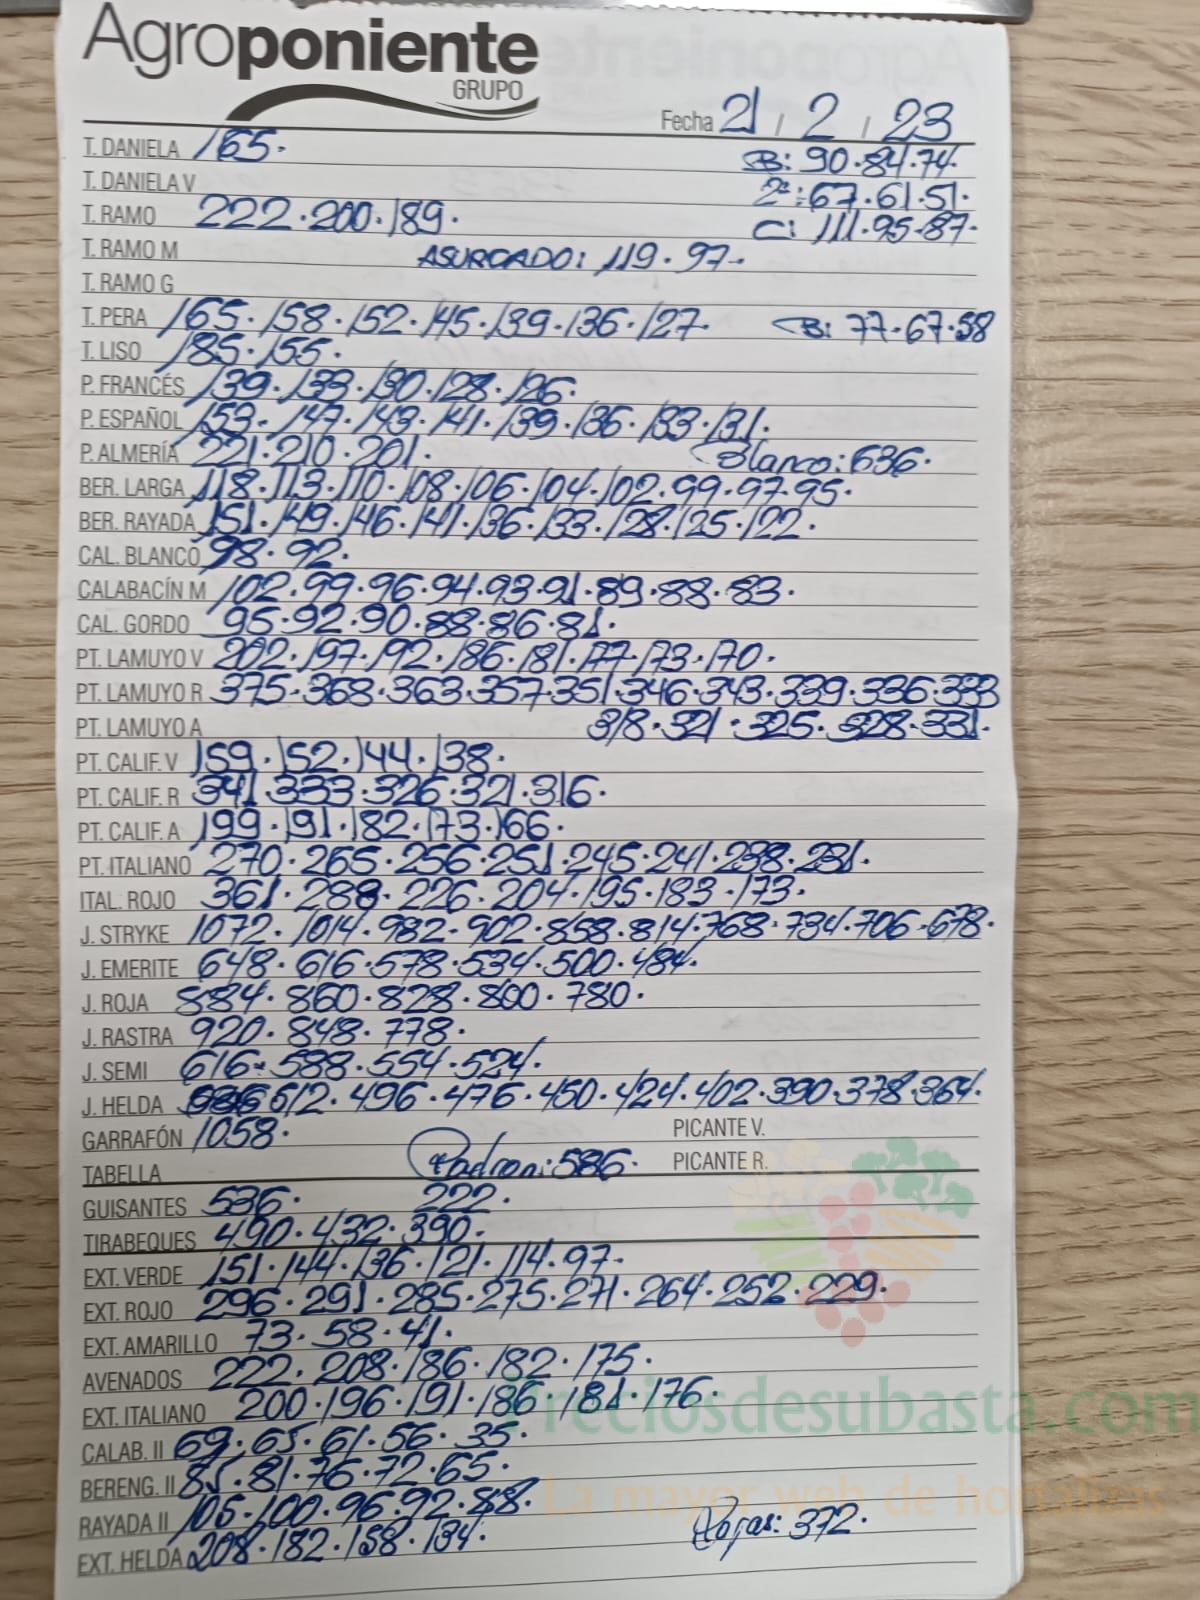 Agroponiente
GRUPO
Fecha 21 / 2 / 23
T. DANIELA 165. B: 90.84.74.
T. DANIELA V 2ª: 67.61.51.
T. RAMO 222.200.189. C: 111.95.87.
T. RAMO M ASURCADO: 119.97.
T. RAMO G
T. PERA 165.158.152.145.139.136.127. B: 77.67.58
T. LISO 185.155.
P. FRANCÉS 139.133.130.128.126.
P. ESPAÑOL 153.147.143.141.139.136.133.131.
P. ALMERÍA 221.210.201. Blanco: 636.
BER. LARGA 118.113.110.108.106.104.102.99.97.95.
BER. RAYADA 151.149.146.141.136.133.128.125.122.
CAL. BLANCO 98.92.
CALABACÍN M 102.99.96.94.93.91.89.88.83.
CAL. GORDO 95.92.90.88.86.81.
PT. LAMUYO V 202.197.192.186.181.177.173.170.
PT. LAMUYO R 375.368.363.357.351.346.343.339.336.333
PT. LAMUYO A 318.321.325.328.331.
PT. CALIF. V 159.152.144.138.
PT. CALIF. R 341.333.326.321.316.
PT. CALIF. A 199.191.182.173.166.
PT. ITALIANO 270.265.256.251.245.241.238.231.
ITAL. ROJO 361.288.226.204.195.183.173.
J. STRYKE 1072.1014.982.902.858.814.768.734.706.678.
J. EMERITE 648.616.578.534.500.484.
J. ROJA 884.860.828.800.780.
J. RASTRA 920.848.778.
J. SEMI 616.588.554.524.
J. HELDA 512.496.476.450.424.402.390.378.364.
GARRAFÓN 1058. PICANTE V.
TABELLA Padron: 586. PICANTE R.
GUISANTES 536. 222.
TIRABEQUES 490.432.390.
EXT. VERDE 151.144.136.121.114.97.
EXT. ROJO 296.291.285.275.271.264.252.229.
EXT. AMARILLO 73.58.41.
AVENADOS 222.208.186.182.175.
EXT. ITALIANO 200.196.191.186.181.176.
Preciosdesubasta.com
CALAB. II 69.65.61.56.35.
BERENG. II 85.81.76.72.65.
La mayor web de hortalizas
RAYADA II 105.100.96.92.88.
EXT. HELDA 208.182.158.134. Rojas: 372.